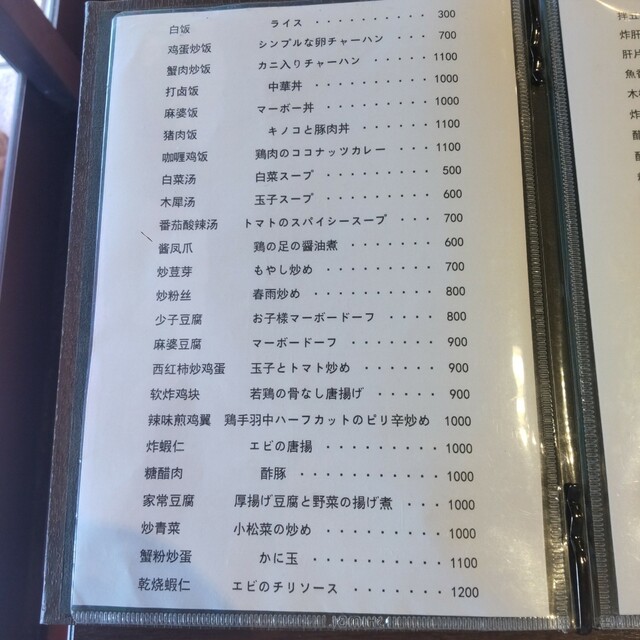 白饭 ライス ・・・・・・・・・・ 300
鸡蛋炒饭 シンプルな卵チャーハン ・・・・ 700
蟹肉炒饭 カニ入りチャーハン ・・・・・・ 1100
打卤饭 中華丼 ・・・・・・・・・ 1000
麻婆饭 マーボー丼 ・・・・・・・・ 1000
猪肉饭 キノコと豚肉丼 ・・・・・・ 1100
咖喱鸡饭 鶏肉のココナッツカレー ・・・・ 1100
白菜汤 白菜スープ ・・・・・・・・ 500
木犀汤 玉子スープ ・・・・・・・・ 600
番茄酸辣汤 トマトのスパイシースープ ・・・ 700
酱凤爪 鶏の足の醤油煮 ・・・・・・ 600
炒荳芽 もやし炒め ・・・・・・・・ 700
炒粉丝 春雨炒め ・・・・・・・・・ 800
少子豆腐 お子様マーボードーフ ・・・・ 800
麻婆豆腐 マーボードーフ ・・・・・・ 900
西红柿炒鸡蛋 玉子とトマト炒め ・・・・・・ 900
软炸鸡块 若鶏の骨なし唐揚げ ・・・・・ 900
辣味煎鸡翼 鶏手羽中ハーフカットのピリ辛炒め 1000
炸蝦仁 エビの唐揚 ・・・・・・・・ 1000
糖醋肉 酢豚 ・・・・・・・・・・ 1000
家常豆腐 厚揚げ豆腐と野菜の揚げ煮 ・・・ 1000
炒青菜 小松菜の炒め ・・・・・・・ 1000
蟹粉炒蛋 かに玉 ・・・・・・・・・ 1100
乾烧蝦仁 エビのチリソース ・・・・・・ 1200
炸肝
肝片